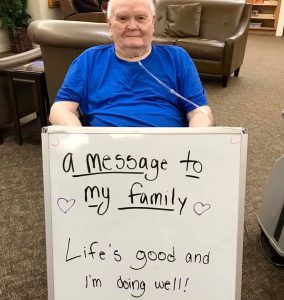 a message to
my family
Life's good and
I'm doing well!